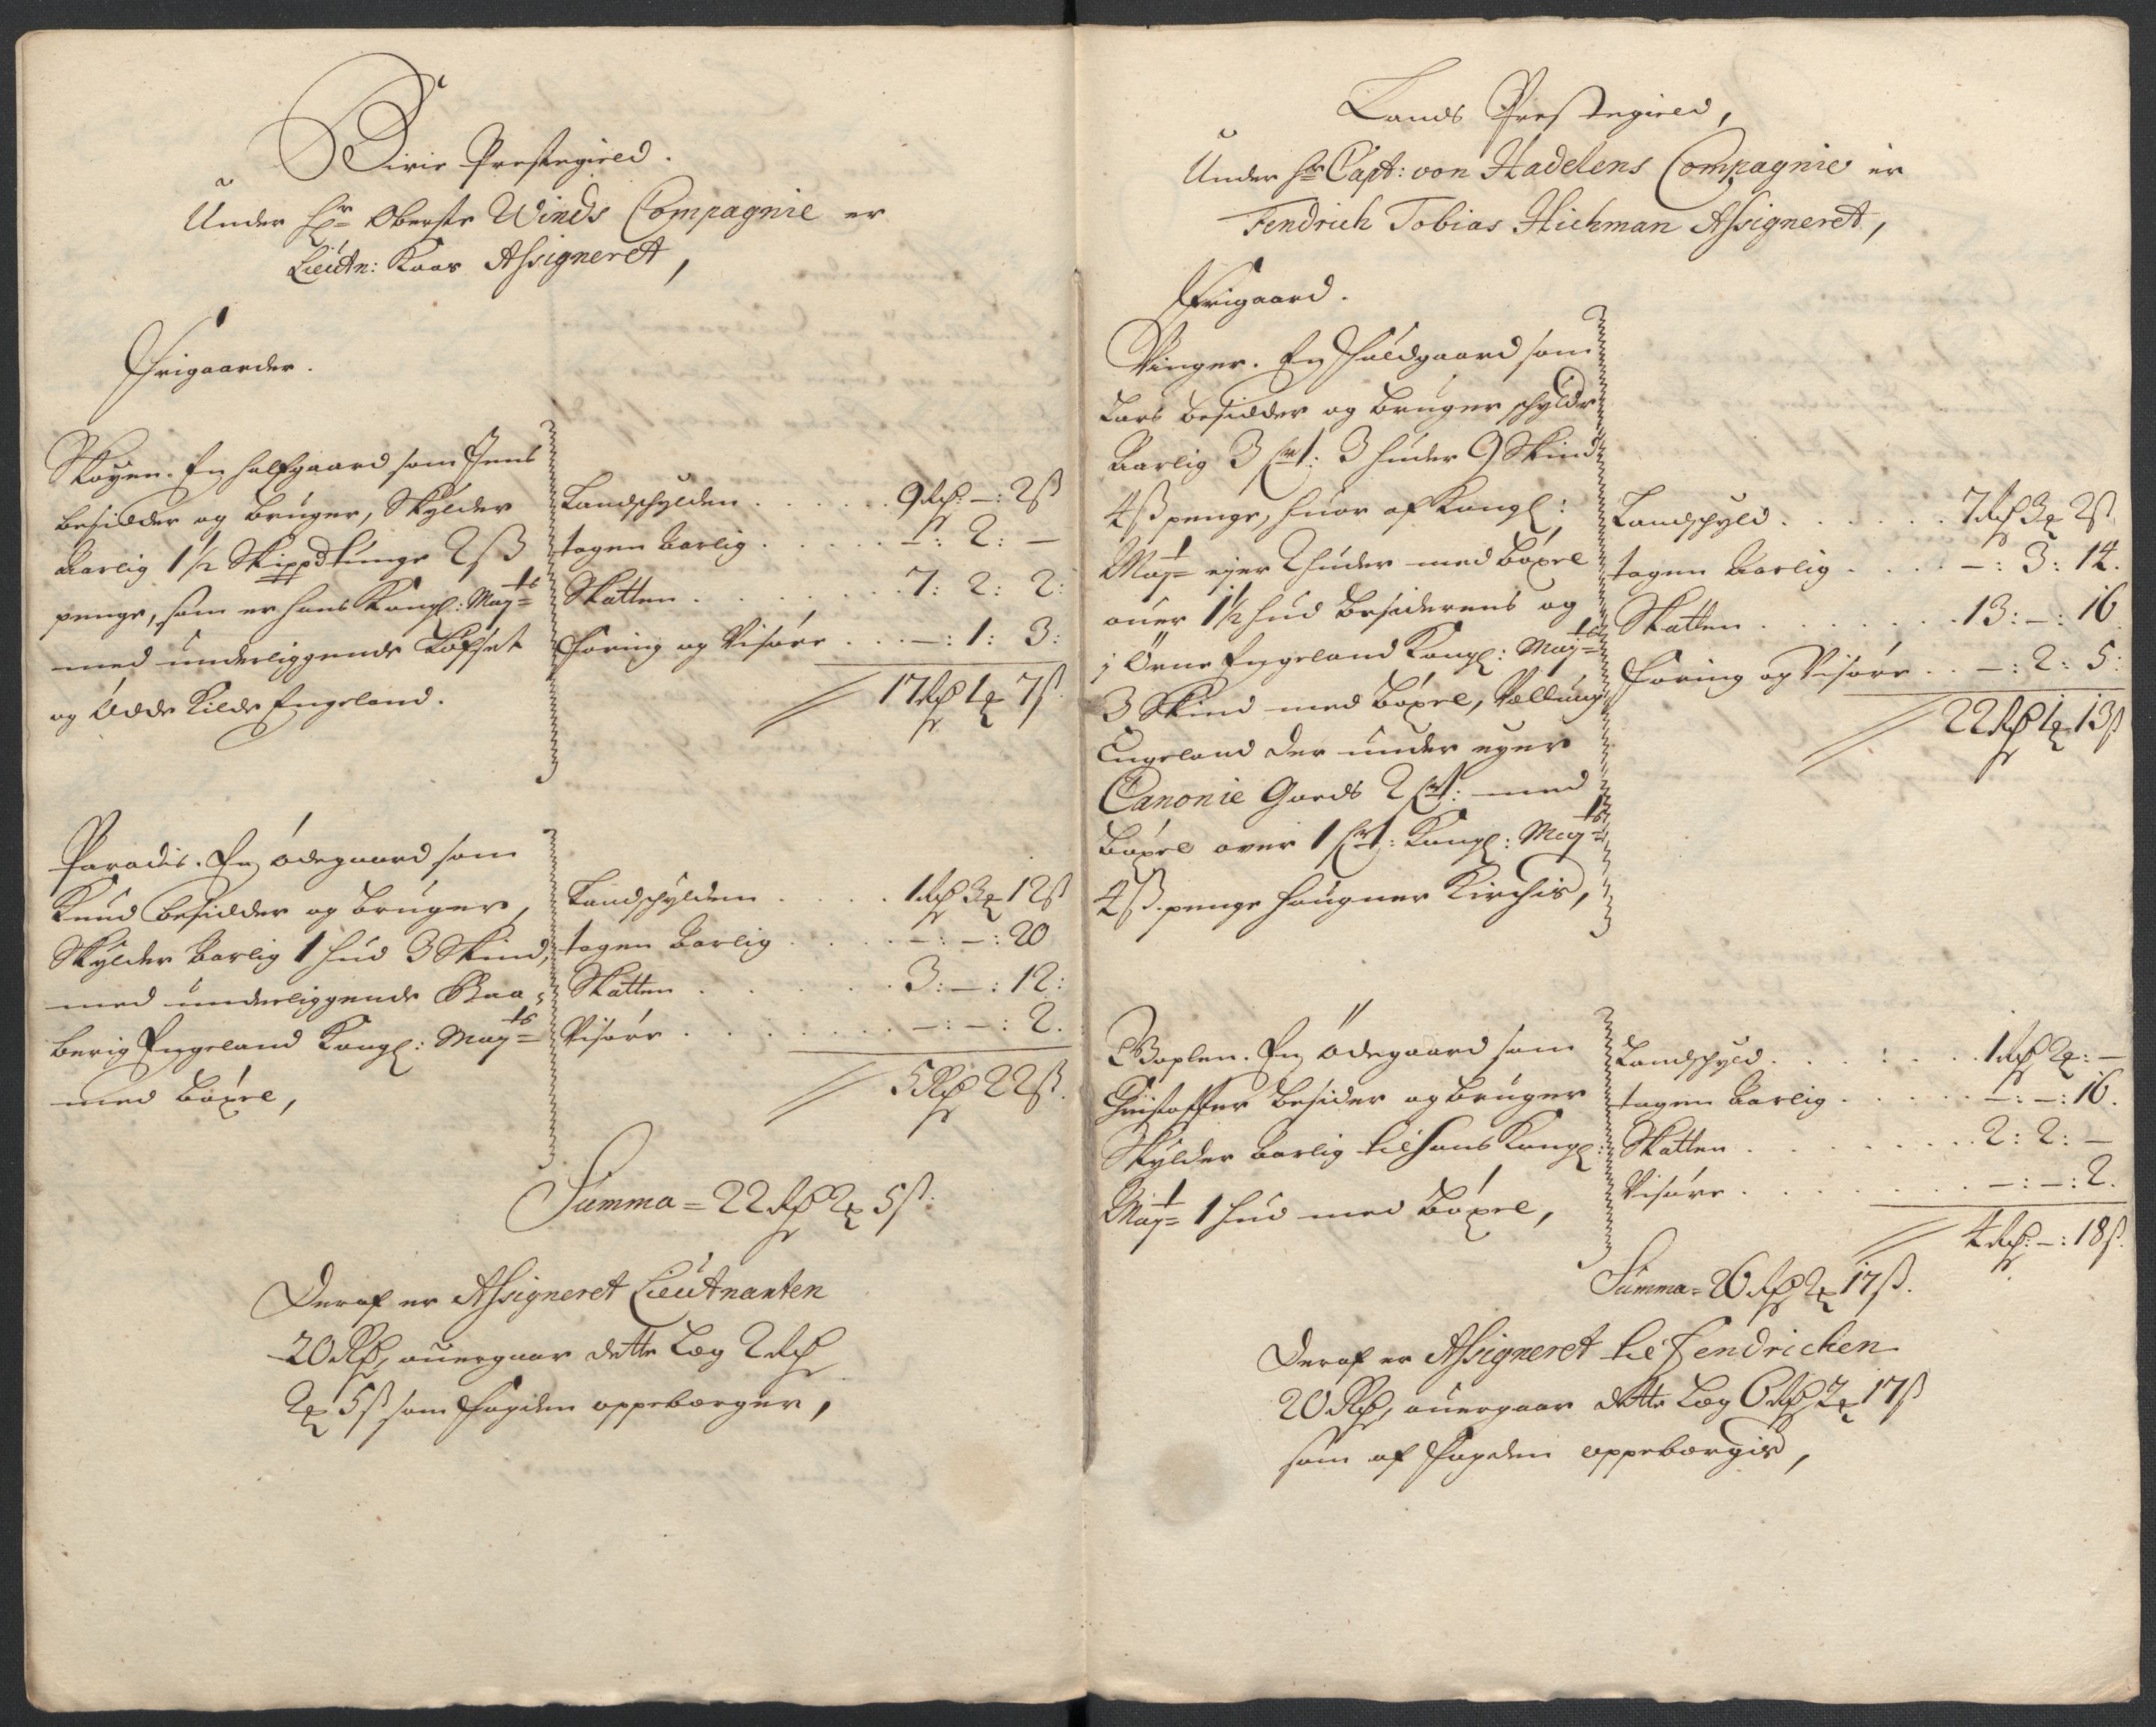 Birie Prestegield.
Under Hr Oberste Winds Compagnie er
Lieutn: Kaas Assigneret,
Frigaarder.
Skøyen. En halfgaard som Jens
besidder og bruger, Skylder
Aarlig 1½ Skippd tunge 2ß
penge, som er hans Kongl: Mayts
med underliggende Løfset
og Udde Kilde Engeland.
Landschylden . . . . . 9 Rd: –: 2ß
tagen Aarlig . . . . . –: 2: –
Skatten . . . . . . . . 7: 2: 2:
Foring og Visøre . . . –: 1: 3:
17 Rd 1 7ß.
Paradis. En ødegaard som
Knud besidder og bruger,
Skylder Aarlig 1 hud 3 Skind,
med underliggende Braa-
berig Engeland Kongl: Mayts
med bøxel,
Landschylden . . . . 1 Rd 3 12ß
tagen Aarlig . . . . –: –: 20
Skatten . . . . . . 3: –: 12:
Visøre . . . . . . . –: –: 2.
5 Rd 22ß.
Summa = 22 Rd 2 5ß:
Deraf er Assigneret Lieutnanten
20 Rd, ouergaar dette Læg 2 Rd
2 5ß som Fogden oppebærger,
Lands Prestegield,
Under Hr Capt: von Hadelens Compagnie er
Fendrich Tobias Hickman Assigneret,
Frigaard.
Vinger. En Fuldgaard som
Lars besidder og bruger schylder
Aarlig 3 : 3 huder 9 Skind
4ß penge, huor af Kongl:
Mayt ejer 2 huder med bøxel
ouer 1½ hud besiderens og
i Ørne Engeland Kongl: Mayts
3 Skind med bøxel, Vollung
Engeland der under eyer
Canonie Gods 2 : med
bøxel over 1 : Kongl: Mayts
4ß. penge Haugner Kirchis,
Landschyld . . . . . . 7 Rd 3 2ß
tagen Aarlig . . . . –: 3: 14.
Skatten . . . . . . . 13: –: 16
Foring og Visøre . . –: 2: 5:
22 Rd 1 13ß
Boplen. En Ødegaard som
Christoffer besider og bruger
Skylder aarlig til hans Kongl:
Mayt 1 hud med bøxel,
Landschyld . . . . . . . 1 Rd 2: –
tagen Aarlig . . . . . –: –: 16.
Skatten . . . . . . . 2: 2: –
Visøre . . . . . . . . –: –: 2.
4 Rd: –: 18ß.
Summa = 26 Rd 2 17ß.
Deraf er Assigneret til Fendrichen
20 Rd, ouergaar dette Læg 6 Rd 2 17ß
som af Fogden oppebærgis,